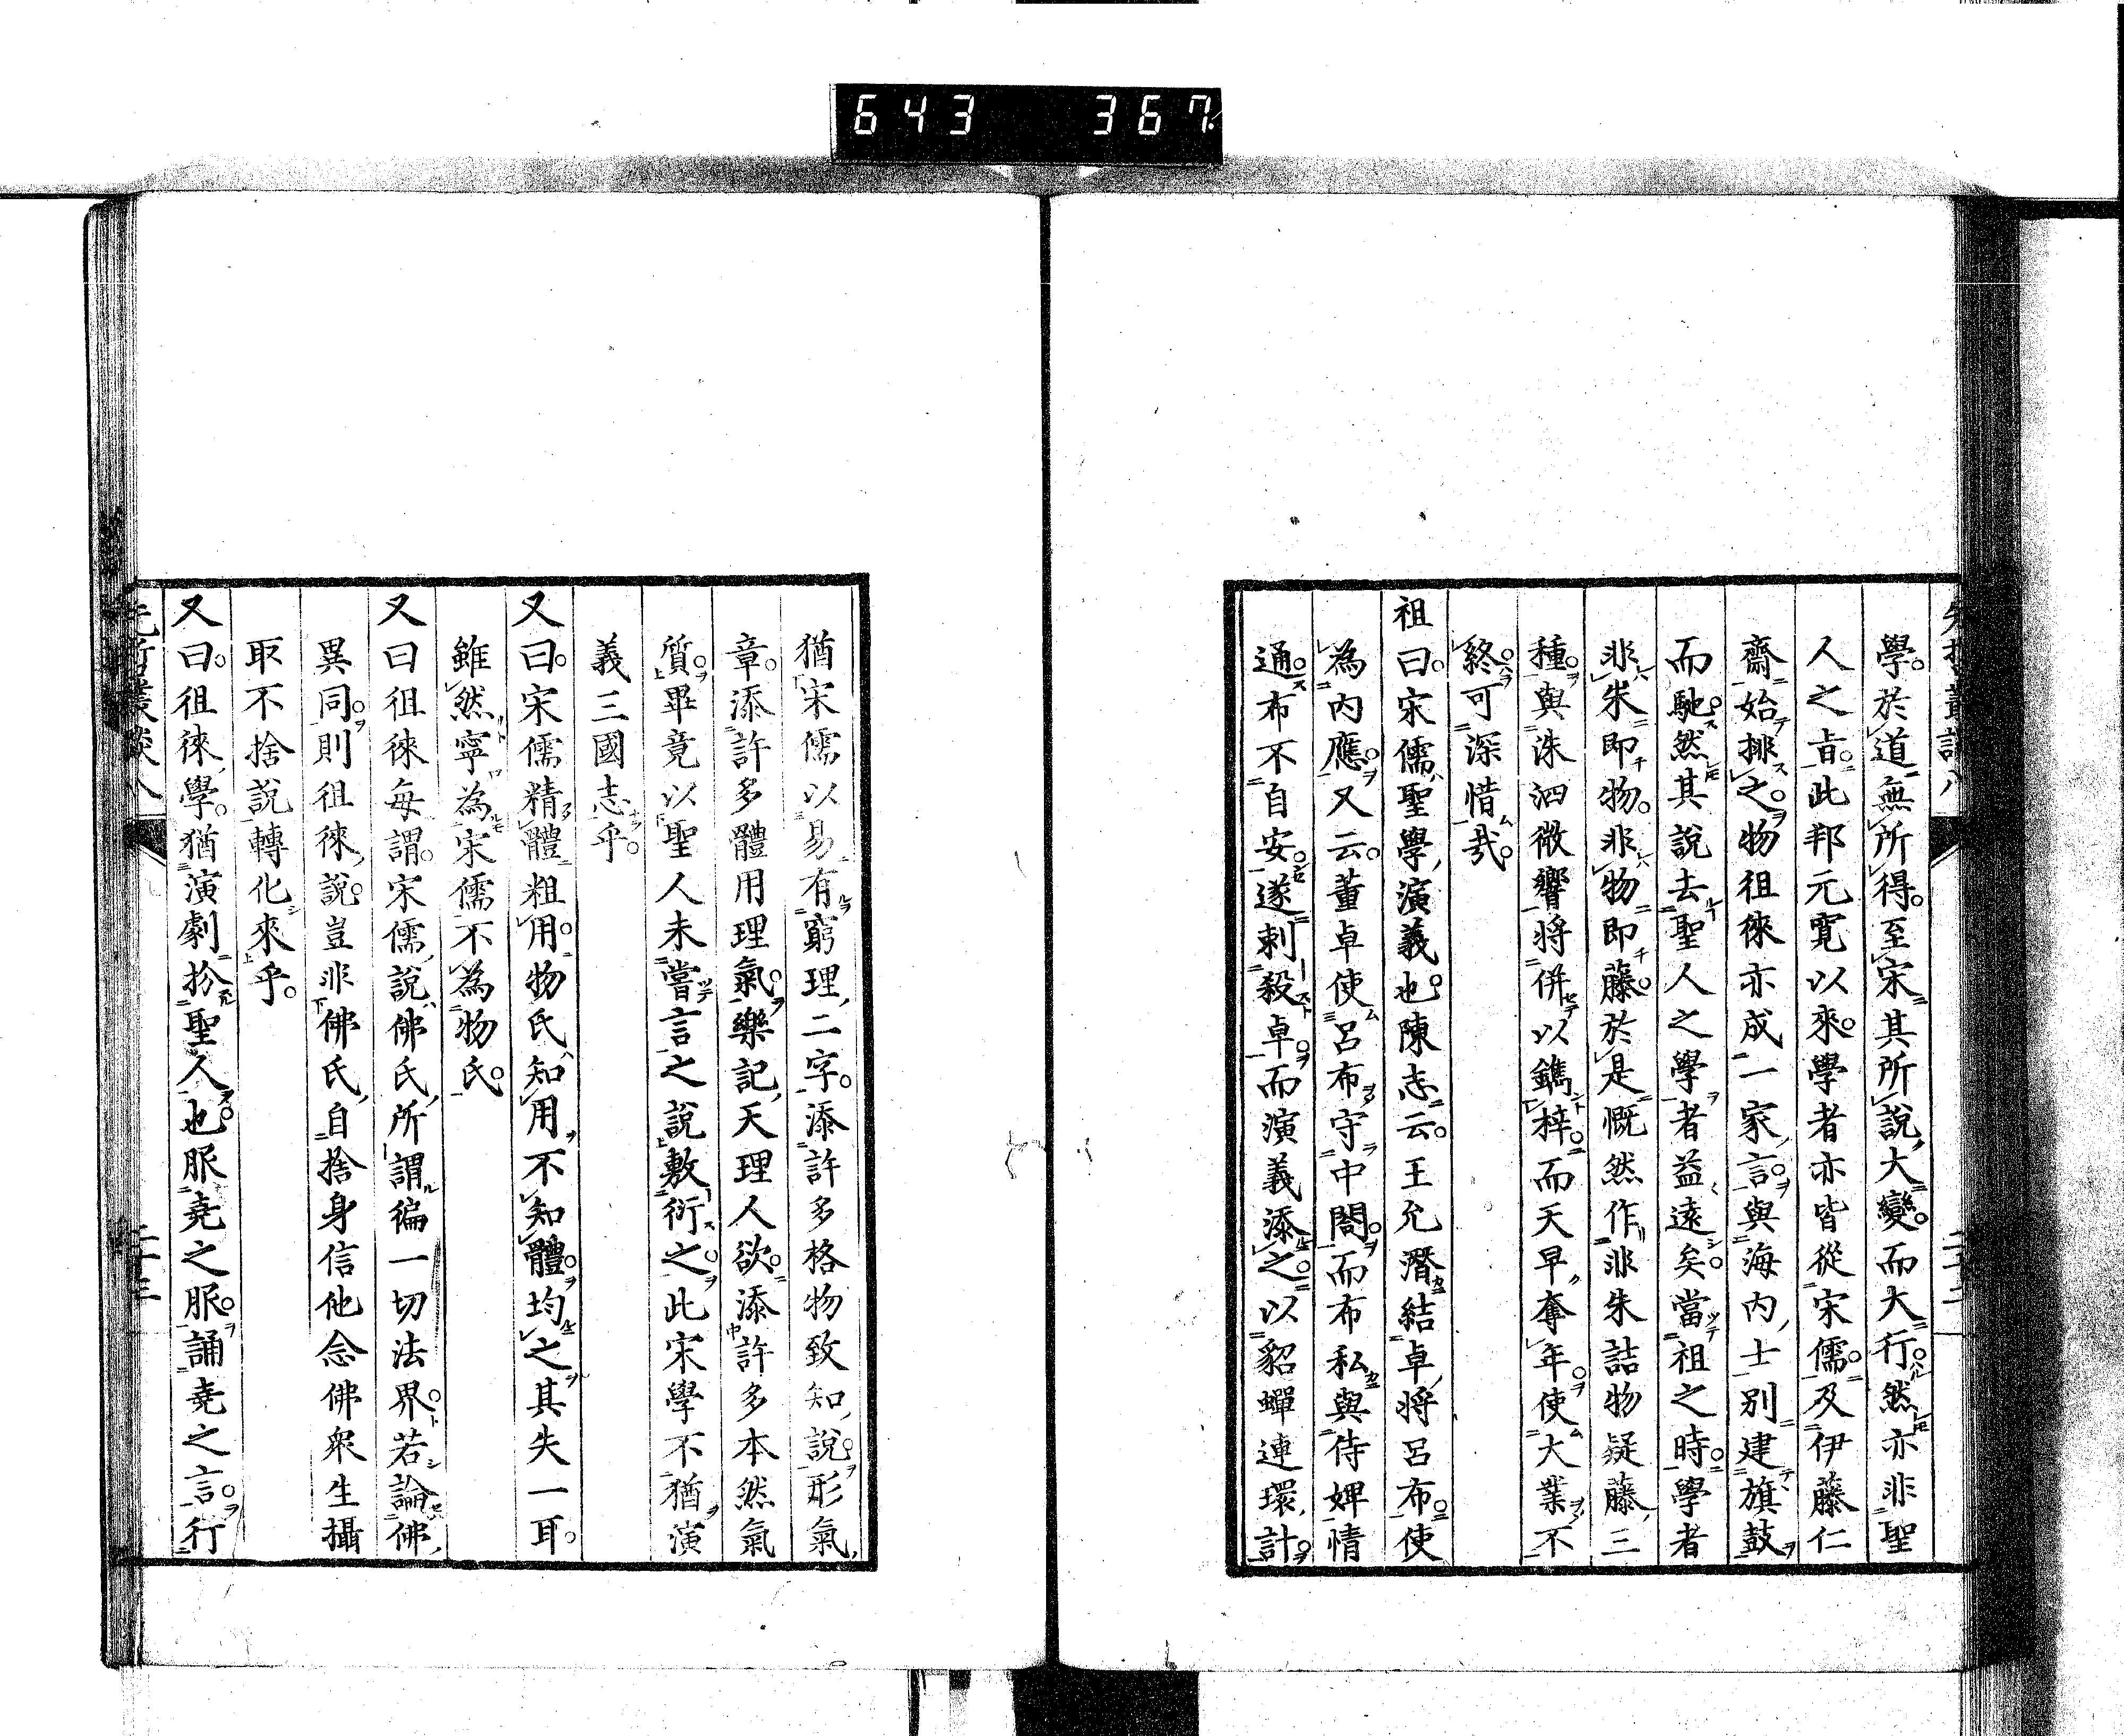 643 367
學於道無所得至宋其所說大變而大行然亦非聖
人之旨此邦元寬以來學者亦皆從宋儒及伊藤仁
齋始排之物徂徠亦成一家言與海內士別建旗鼓
而馳然其說去聖人之學者益遠矣當祖之時學者
非朱即物非物即藤於是慨然作非朱詰物疑藤三
種與洙泗微響將併以鐫梓而天早奪年使大業不
終可深惜哉
祖曰宋儒聖學演義也陳志云王允潛結卓將呂布使
為內應又云董卓使呂布守中閤而布私與侍婢情
通布不自安遂刺殺卓而演義添之以貂蟬連環計
猶宋儒以易有窮理二字添許多格物致知說形氣
章添許多體用理氣樂記天理人欲添許多本然氣
質畢竟以聖人未嘗言之說敷衍之此宋學不猶演
義三國志乎
又曰宋儒精體粗用物氏知用不知體均之其失一耳
雖然寧為宋儒不為物氏
又曰徂徠每謂宋儒說佛氏所謂徧一切法界若論佛
異同則徂徠說豈非佛氏自捨身信他念佛眾生攝
取不捨說轉化來乎
又曰徂徠學猶演劇扮聖人也服堯之服誦堯之言行
先哲叢談八